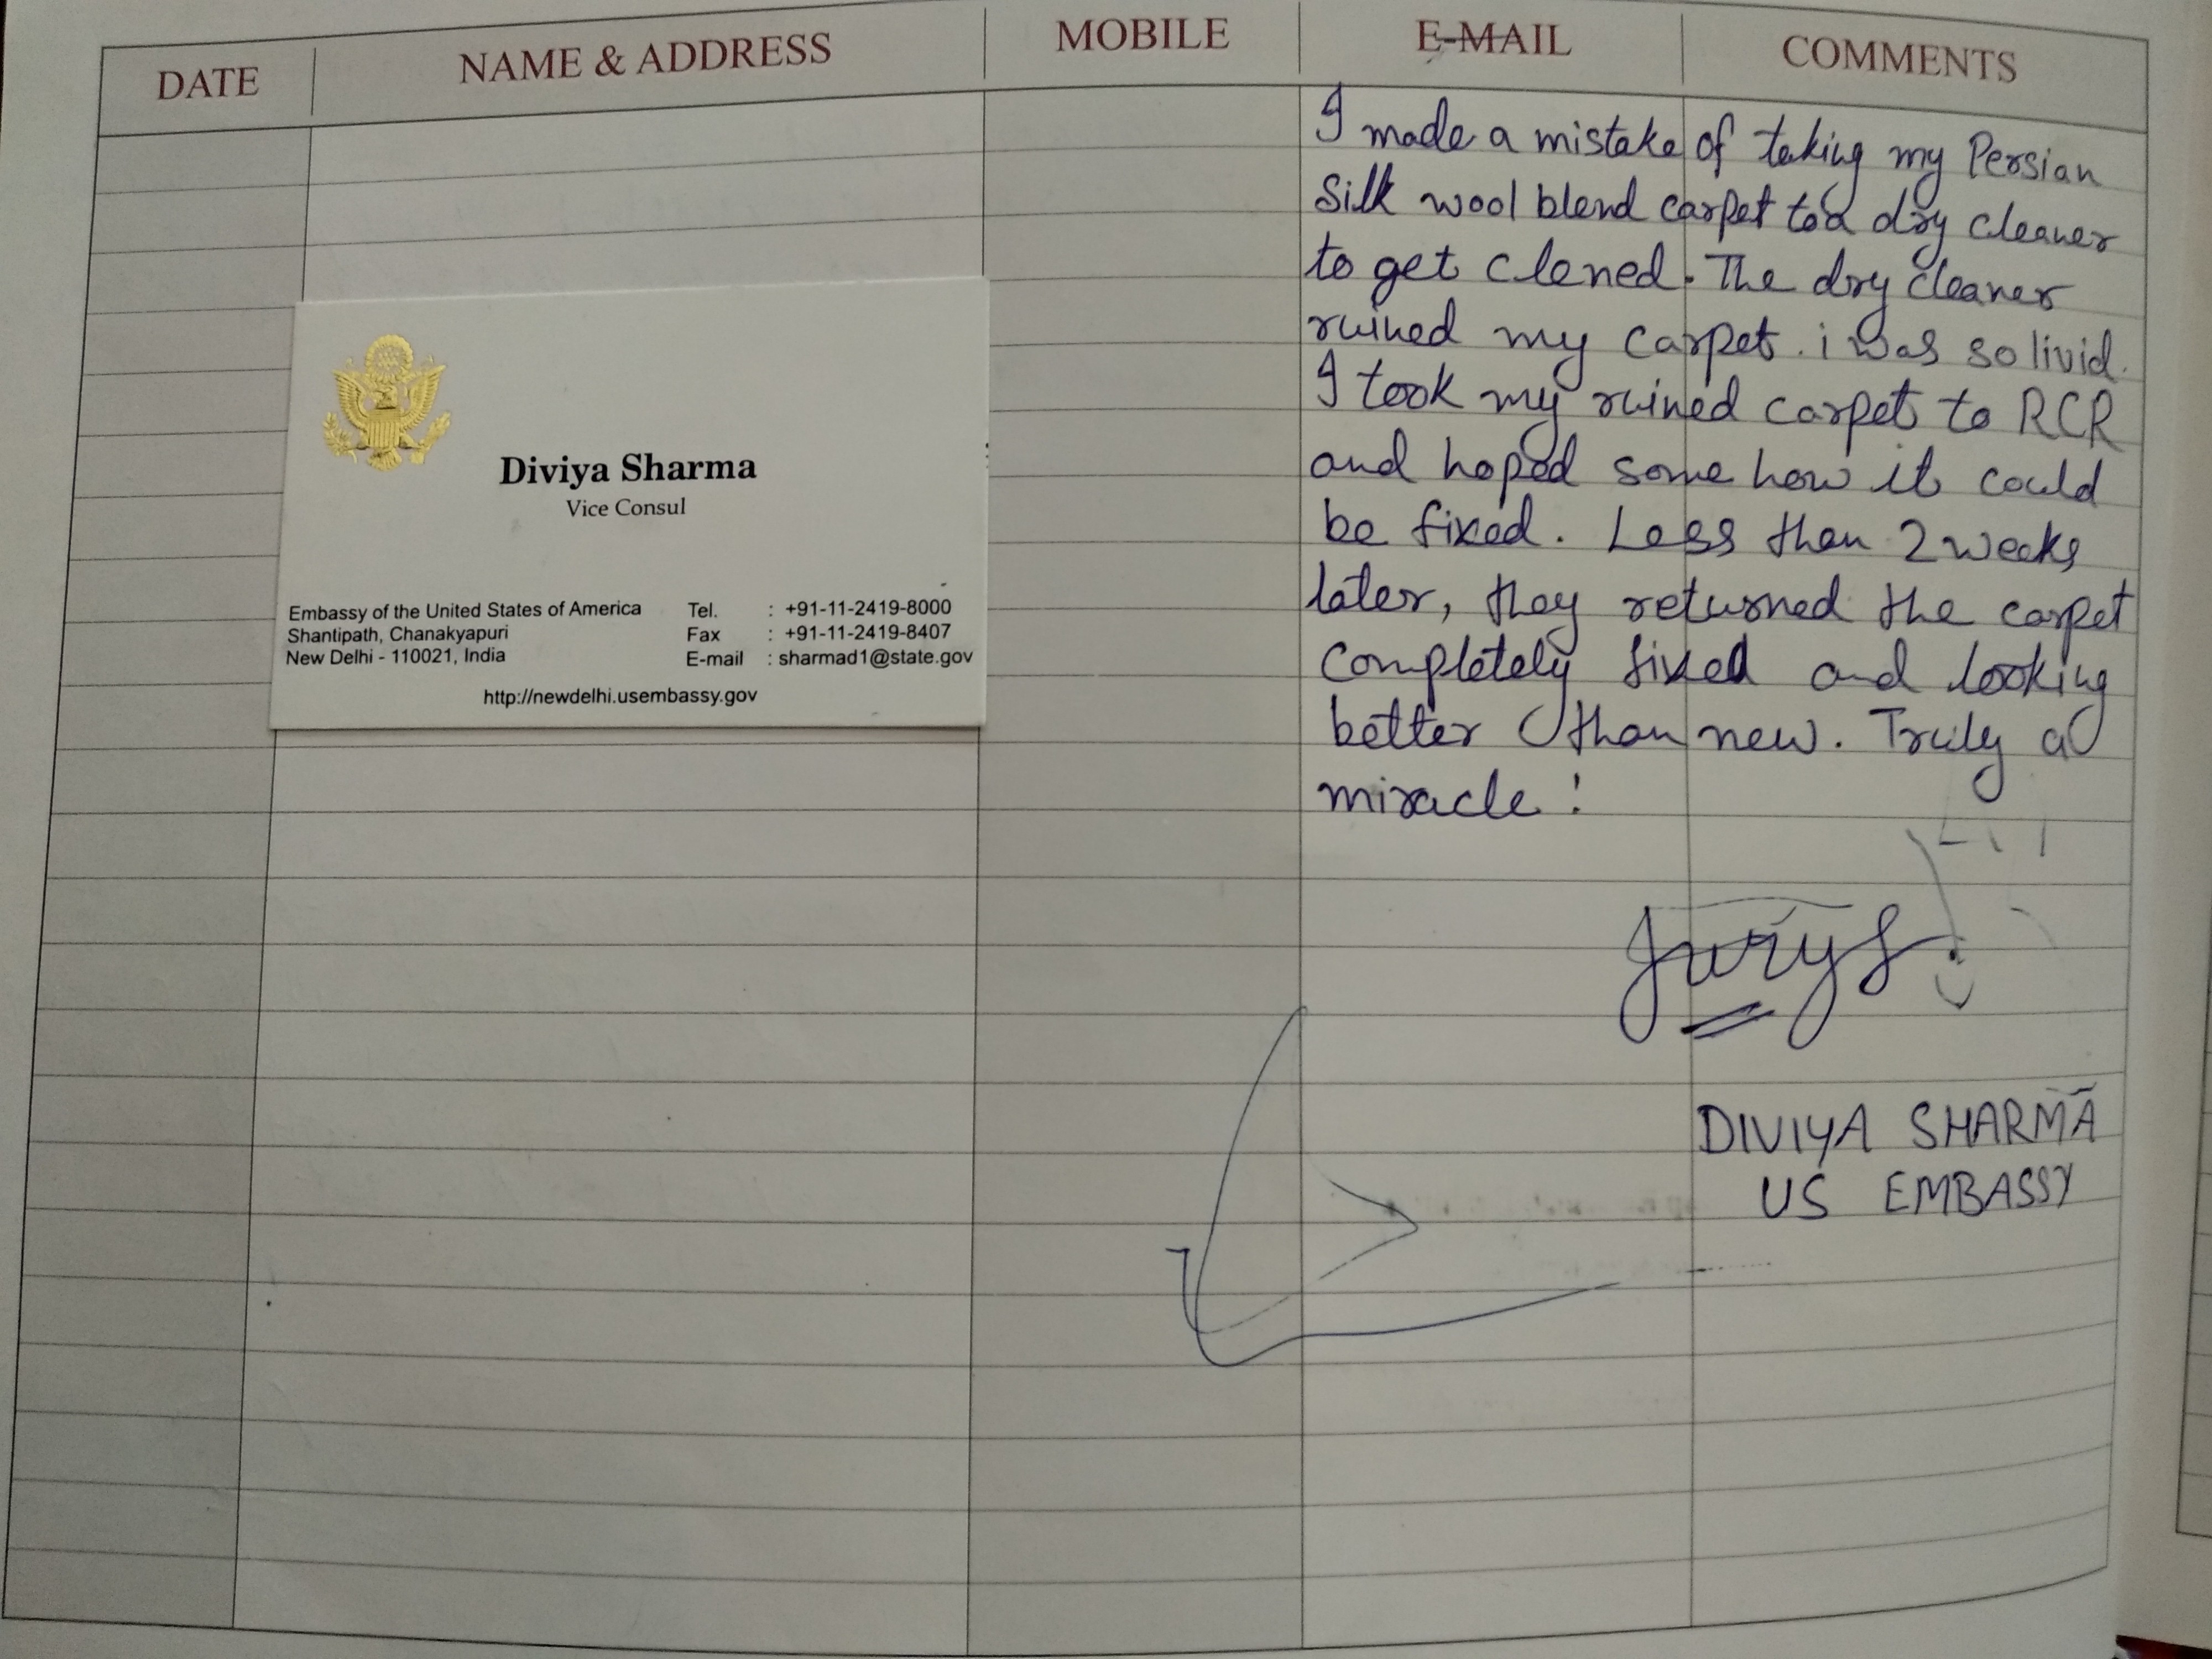 DATE NAME & ADDRESS MOBILE E-MAIL COMMENTS
Diviya Sharma
Vice Consul
Embassy of the United States of America
Shantipath, Chanakyapuri
New Delhi - 110021, India
Tel. : +91-11-2419-8000
Fax : +91-11-2419-8407
E-mail : sharmad1@state.gov
http://newdelhi.usembassy.gov
I made a mistake of taking my Persian
Silk wool blend carpet to a dry cleaner
to get clened. The dry cleaner
ruined my carpet. i was so livid.
I took my ruined carpet to RCR
and hoped some how it could
be fixed. Less than 2 weeks
later, they returned the carpet
completely fixed and looking
better than new. Truly a
miracle!
DIVIYA SHARMA
US EMBASSY